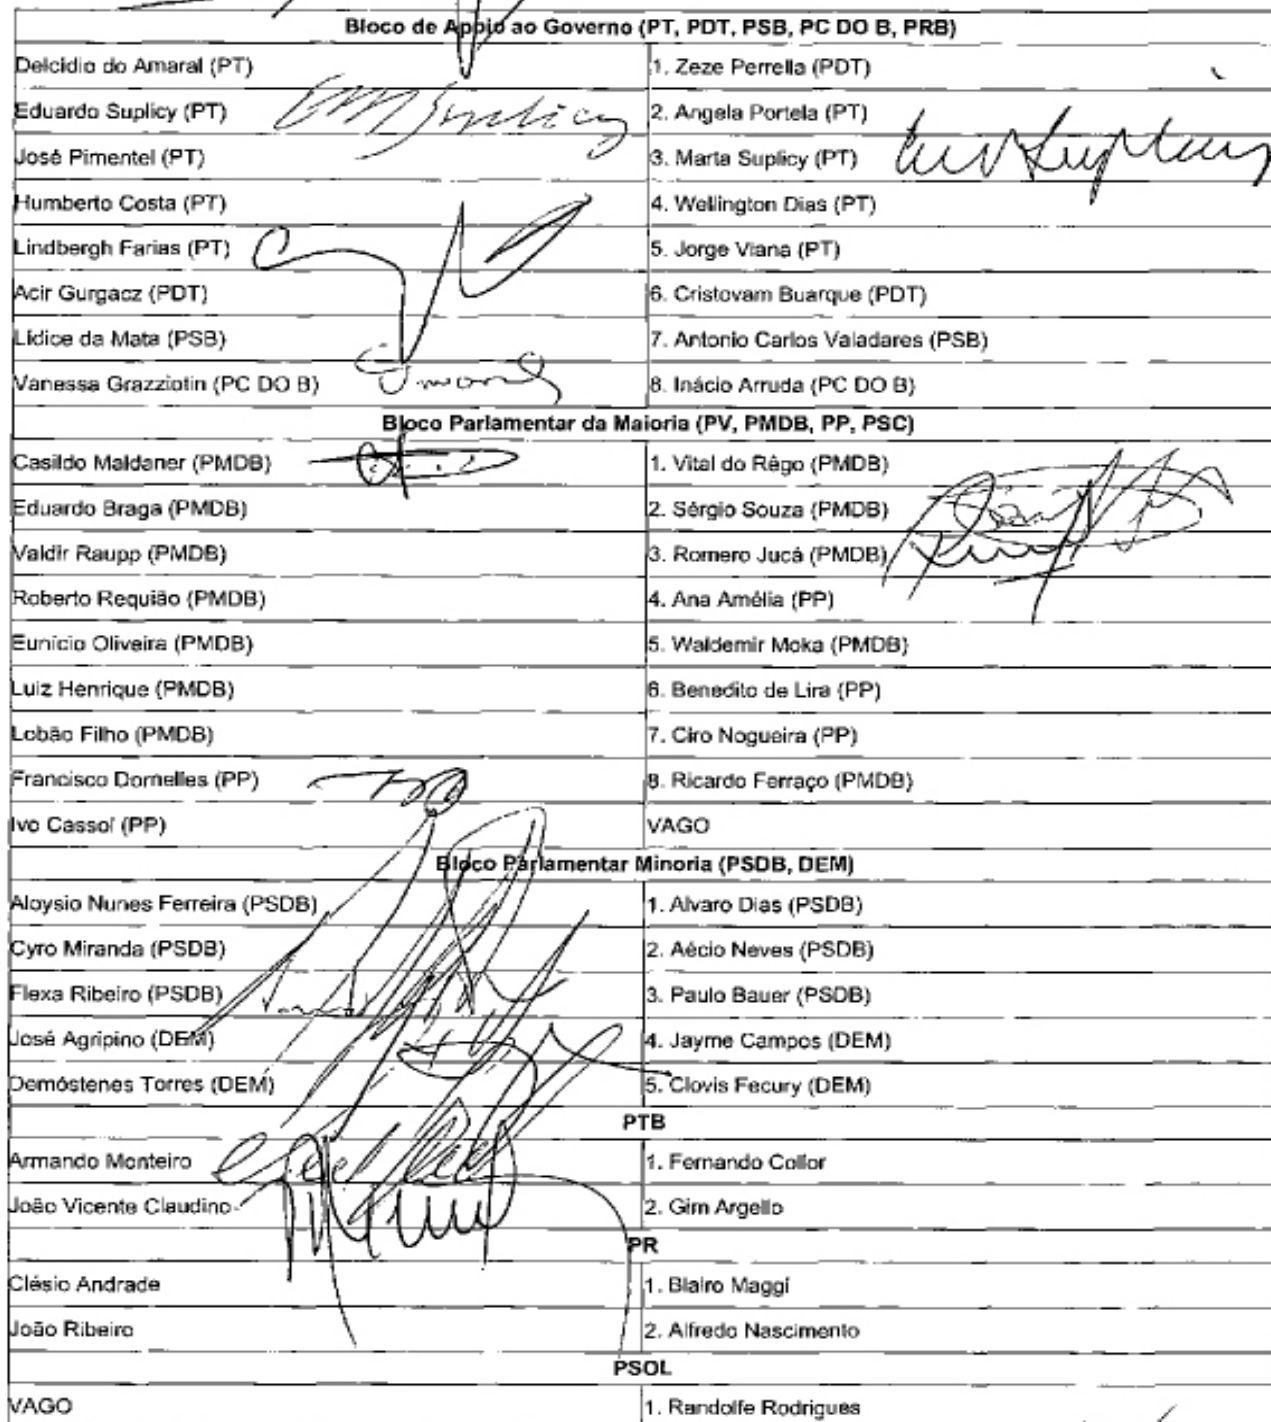 Bloco de Apoio ao Governo (PT, PDT, PSB, PC DO B, PRB)
Delcídio do Amaral (PT) 1. Zeze Perrella (PDT)
Eduardo Suplicy (PT) 2. Angela Portela (PT)
José Pimentel (PT) 3. Marta Suplicy (PT)
Humberto Costa (PT) 4. Wellington Dias (PT)
Lindbergh Farias (PT) 5. Jorge Viana (PT)
Acir Gurgacz (PDT) 6. Cristovam Buarque (PDT)
Lídice da Mata (PSB) 7. Antonio Carlos Valadares (PSB)
Vanessa Grazziotin (PC DO B) 8. Inácio Arruda (PC DO B)
Bloco Parlamentar da Maioria (PV, PMDB, PP, PSC)
Casildo Maldaner (PMDB) 1. Vital do Rêgo (PMDB)
Eduardo Braga (PMDB) 2. Sérgio Souza (PMDB)
Valdir Raupp (PMDB) 3. Romero Jucá (PMDB)
Roberto Requião (PMDB) 4. Ana Amélia (PP)
Eunício Oliveira (PMDB) 5. Waldemir Moka (PMDB)
Luiz Henrique (PMDB) 6. Benedito de Lira (PP)
Lobão Filho (PMDB) 7. Ciro Nogueira (PP)
Francisco Dornelles (PP) 8. Ricardo Ferraço (PMDB)
Ivo Cassol (PP) VAGO
Bloco Parlamentar Minoria (PSDB, DEM)
Aloysio Nunes Ferreira (PSDB) 1. Alvaro Dias (PSDB)
Cyro Miranda (PSDB) 2. Aécio Neves (PSDB)
Flexa Ribeiro (PSDB) 3. Paulo Bauer (PSDB)
José Agripino (DEM) 4. Jayme Campos (DEM)
Demóstenes Torres (DEM) 5. Clovis Fecury (DEM)
PTB
Armando Monteiro 1. Fernando Collor
João Vicente Claudino 2. Gim Argello
PR
Clésio Andrade 1. Blairo Maggi
João Ribeiro 2. Alfredo Nascimento
PSOL
VAGO 1. Randolfe Rodrigues